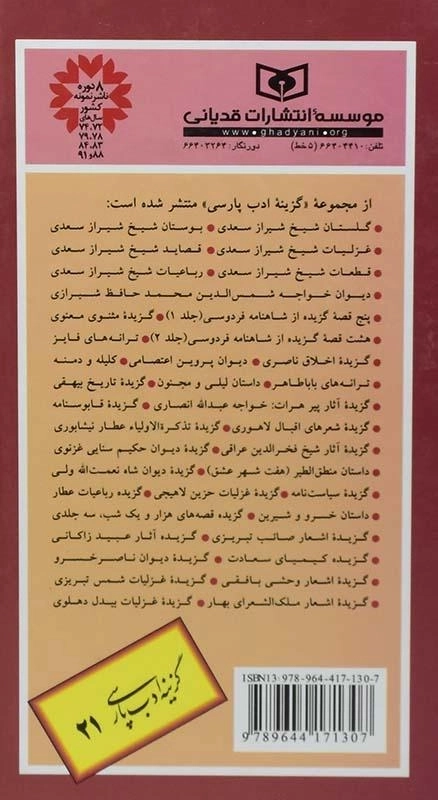 ۸ دوره
ناشر نمونه
کشور
سال‌های
۷۴،۷۲
۷۹،۷۸
۸۴،۸۳
۸۸ و ۹۱
موسسهٔ انتشارات قدیانی
www.ghadyani.org
تلفن: ۶۶۴۰۴۴۱۰ (۵ خط) دورنگار: ۶۶۴۰۳۲۶۴
از مجموعهٔ «گزینهٔ ادب پارسی» منتشر شده است:
● گلستان شیخ شیراز سعدی ● بوستان شیخ شیراز سعدی
● غزلیات شیخ شیراز سعدی ● قصاید شیخ شیراز سعدی
● قطعات شیخ شیراز سعدی ● رباعیات شیخ شیراز سعدی
● دیوان خواجه شمس‌الدین محمد حافظ شیرازی
● پنج قصهٔ گزیده از شاهنامه فردوسی(جلد ۱) ● گزیدهٔ مثنوی معنوی
● هشت قصهٔ گزیده از شاهنامه فردوسی(جلد ۲) ● ترانه‌های فایز
● گزیدهٔ اخلاق ناصری ● دیوان پروین اعتصامی ● کلیله و دمنه
● ترانه‌های باباطاهر ● داستان لیلی و مجنون ● گزیدهٔ تاریخ بیهقی
● گزیدهٔ آثار پیر هرات: خواجه عبدالله انصاری ● گزیدهٔ قابوسنامه
● گزیدهٔ شعرهای اقبال لاهوری ● گزیدهٔ تذکرةالاولیاء عطار نیشابوری
● گزیدهٔ آثار شیخ فخرالدین عراقی ● گزیدهٔ دیوان حکیم سنایی غزنوی
● داستان منطق‌الطیر (هفت شهر عشق) ● گزیدهٔ دیوان شاه نعمت‌الله ولی
● گزیدهٔ سیاست‌نامه ● گزیدهٔ غزلیات حزین لاهیجی ● گزیده رباعیات عطار
● داستان خسرو و شیرین ● گزیده قصه‌های هزار و یک شب، سه جلدی
● گزیدهٔ اشعار صائب تبریزی ● گزیده آثار عبید زاکانی
● گزیده کیمیای سعادت ● گزیدهٔ دیوان ناصرخسرو
● گزیدهٔ اشعار وحشی بافقی ● گزیدهٔ غزلیات شمس تبریزی
● گزیدهٔ اشعار ملک‌الشعرای بهار ● گزیدهٔ غزلیات بیدل دهلوی
گزینه ادب پارسی
۲۱
ISBN13 978-964-417-130-7
9 789644 171307